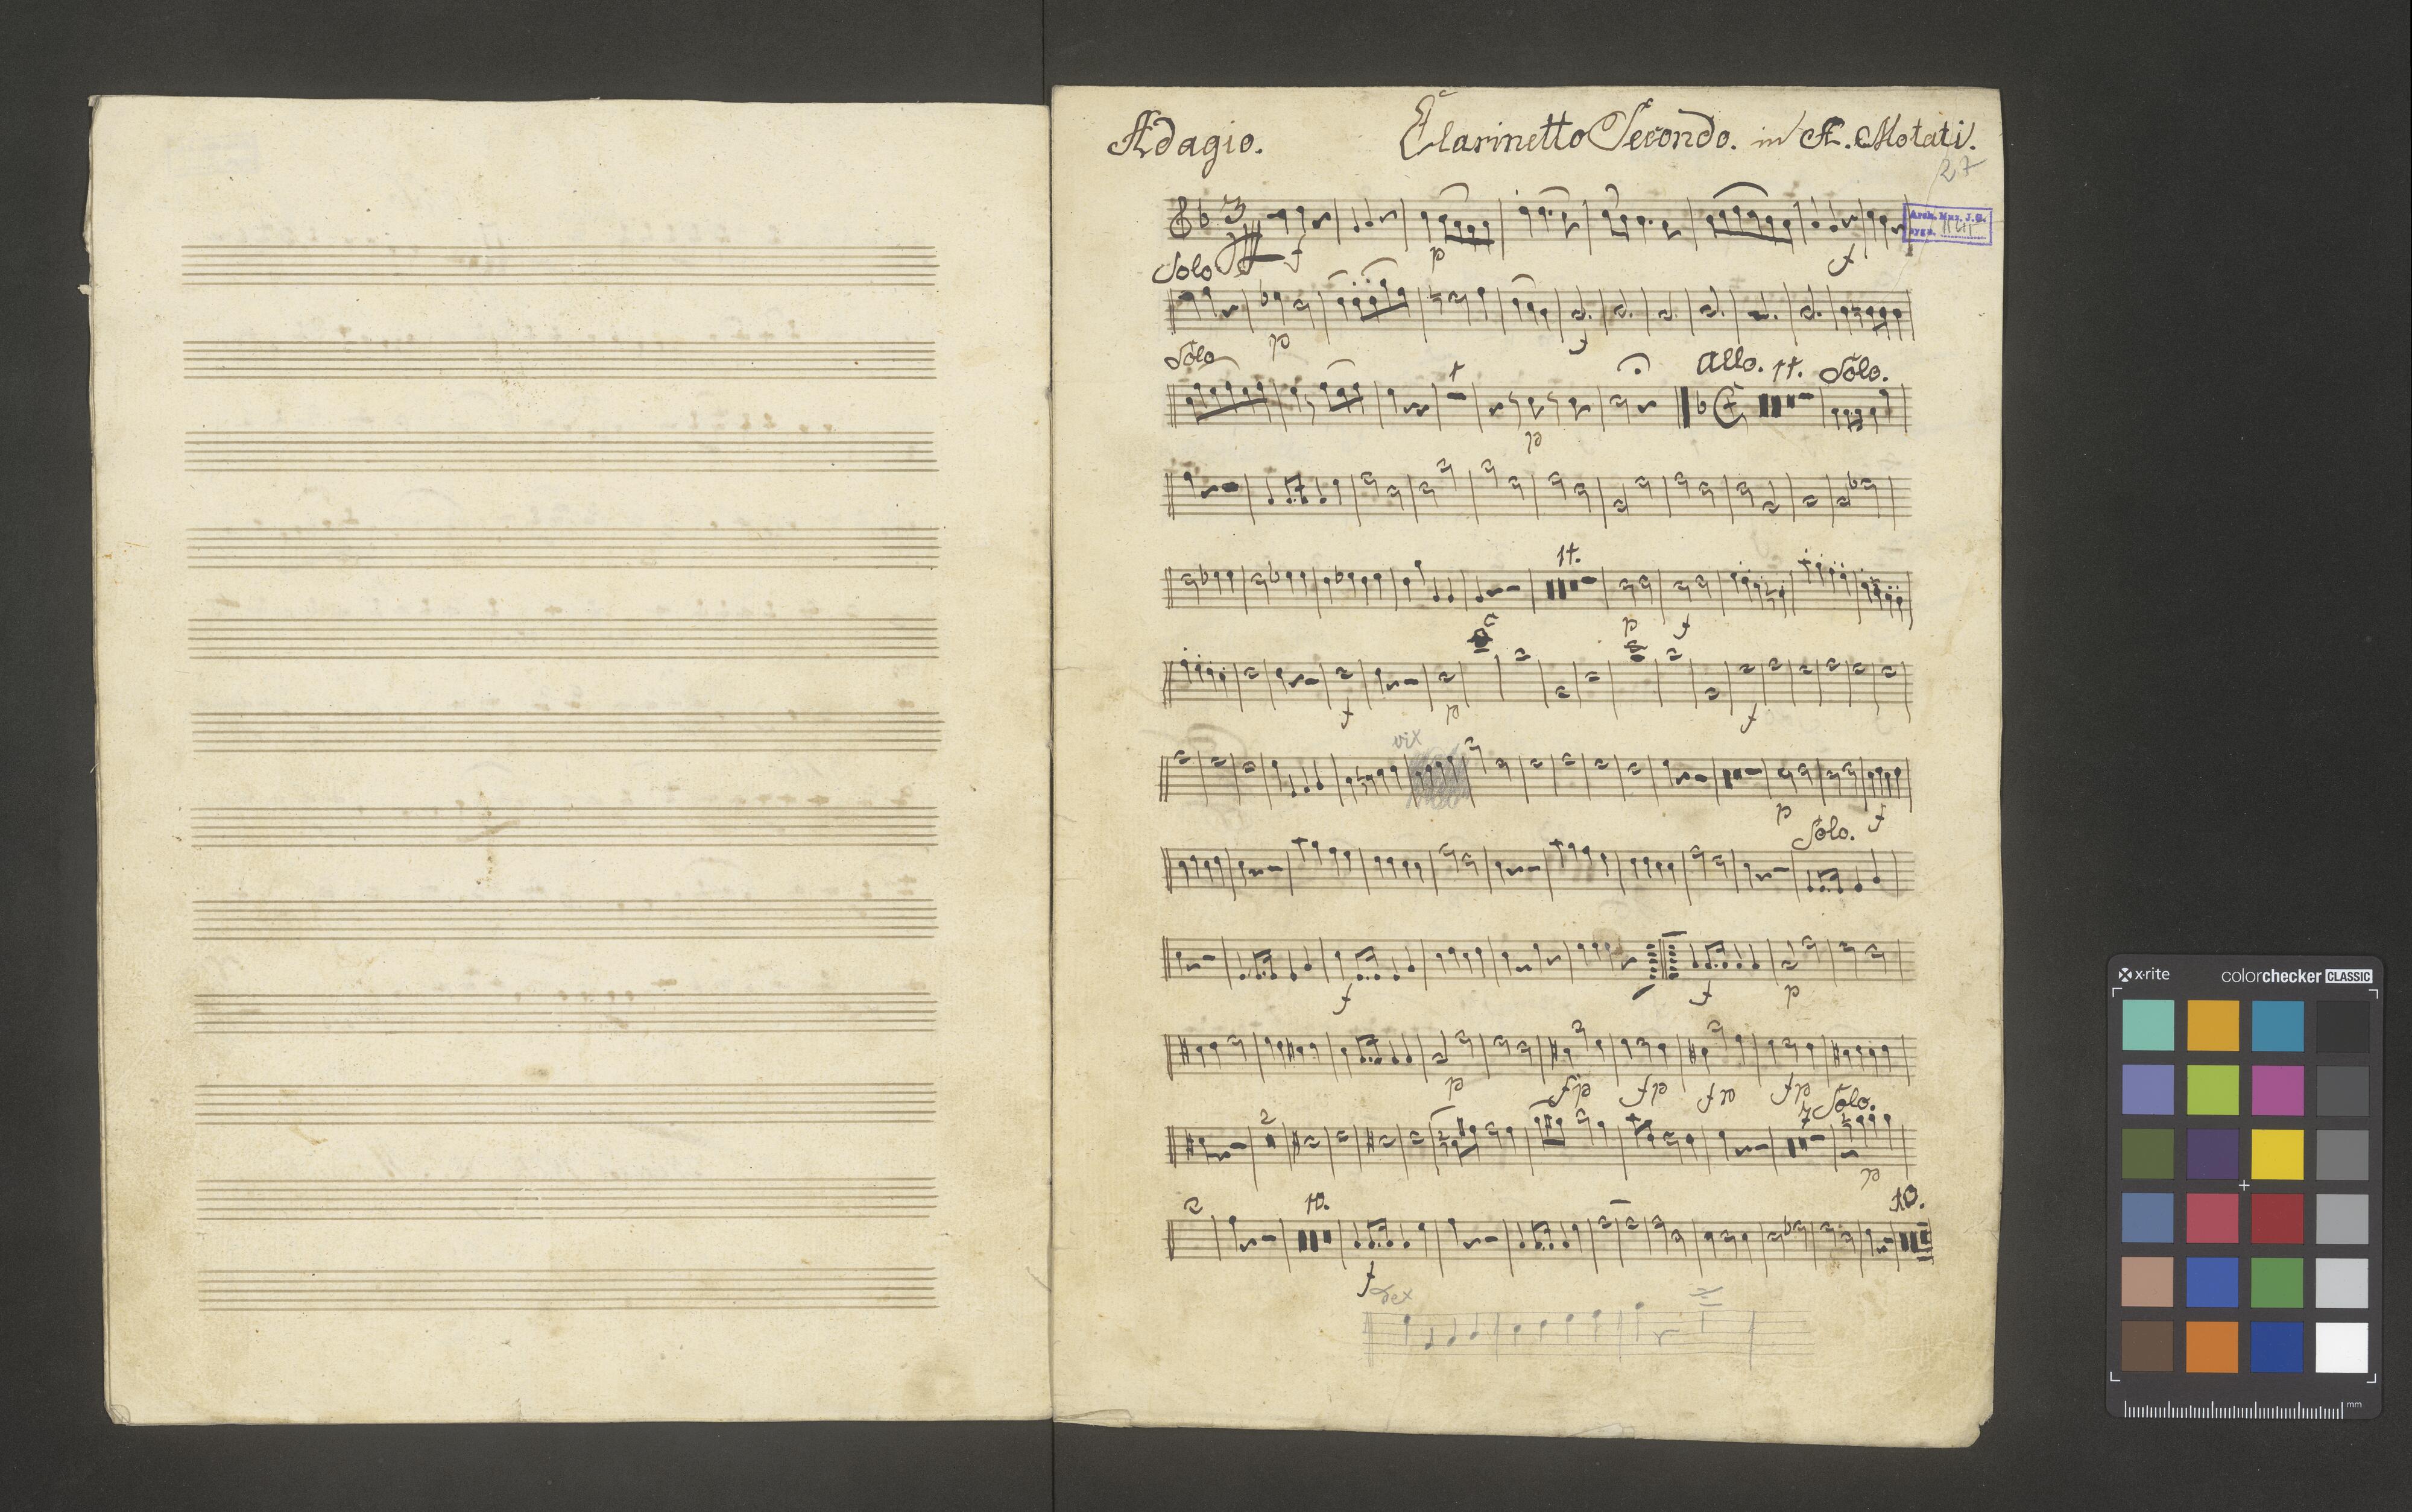 Adagio. Clarinetto Secondo. in A. Motati.
27
Arch. Muz. J. G.
sygn.
3
f p f
Solo
p f
Solo 1 Allo. 11. Solo.
p
11.
p f
f p f
vix
p f
Solo.
f f p
p fp fp fp fp
2 7 Solo.
p
2 10. 10.
f
x-rite colorchecker CLASSIC
mm